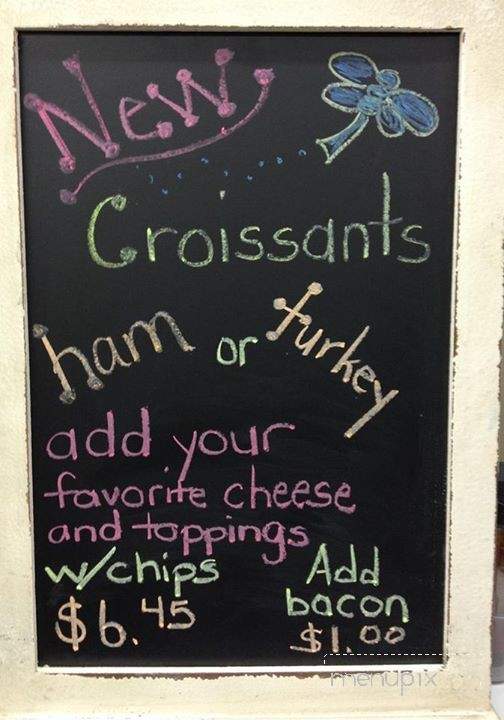 New
Croissants
ham or turkey
add your
favorite cheese
and toppings
w/chips
$6.45
Add
bacon
$1.00
menupix